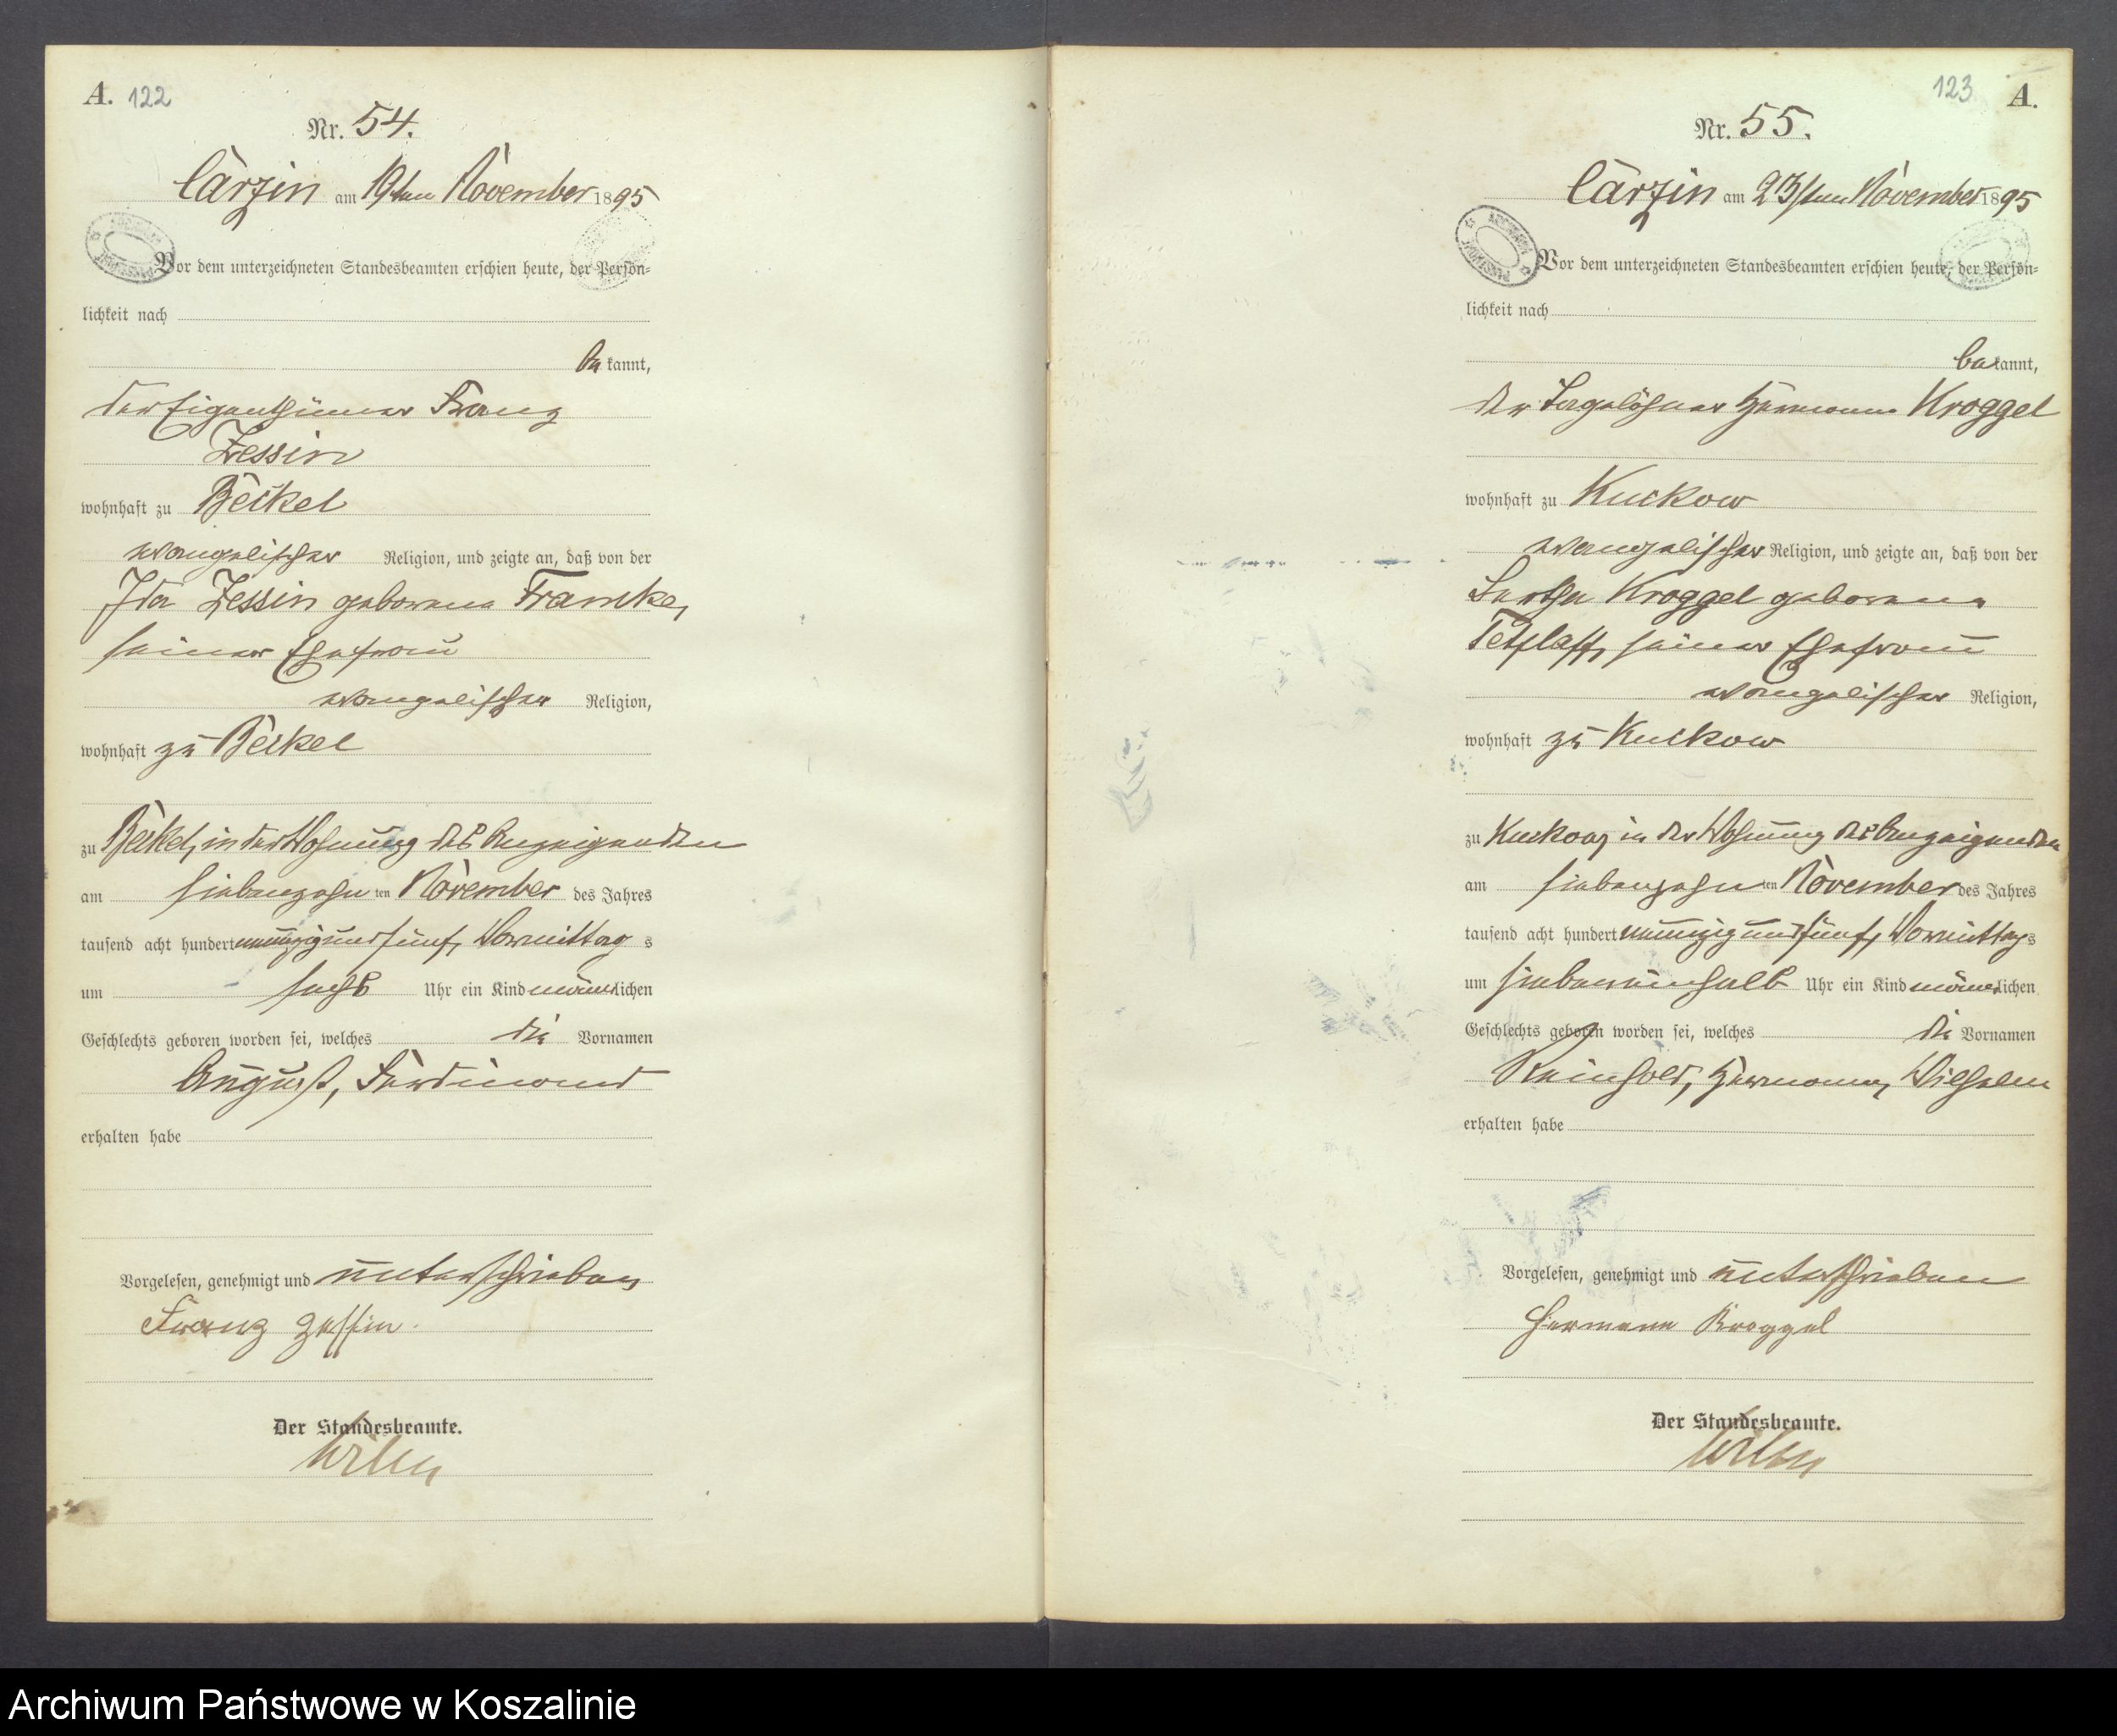 A. 122
Nr. 54.
Carzin am 19ten November 1895
Vor dem unterzeichneten Standesbeamten erschien heute, der Persön-
lichkeit nach
be kannt,
der Eigenthümer Franz
Zessin
wohnhaft zu Beckel
evangelischer Religion, und zeigte an, daß von der
Ida Zessin geborene Framke,
seiner Ehefrau
evangelischer Religion,
wohnhaft zu Beckel
zu Beckel, in der Wohnung des Anzeigenden
am siebenzehn ten November des Jahres
tausend acht hundert neunzig und fünf, Vormittag s
um sechs Uhr ein Kind männlichen
Geschlechts geboren worden sei, welches die Vornamen
August, Ferdinand
erhalten habe
Vorgelesen, genehmigt und unterschrieben
Franz Zessin.
Der Standesbeamte.
123 A.
Nr. 55.
Carzin am 23ten November 1895
Vor dem unterzeichneten Standesbeamten erschien heute, der Persön-
lichkeit nach
be kannt,
der Tagelöhner Hermann Kroggel
wohnhaft zu Kuckow
evangelischer Religion, und zeigte an, daß von der
Kroggel geborene
Tetzlaff, seiner Ehefrau
evangelischer Religion,
wohnhaft zu Kuckow
zu Kuckow, in der Wohnung des Anzeigenden
am siebenzehn ten November des Jahres
tausend acht hundert neunzig und fünf, Vormittags
um siebeneinhalb Uhr ein Kind männlichen
Geschlechts geboren worden sei, welches die Vornamen
Reinhold, Hermann, Wilhelm
erhalten habe
Vorgelesen, genehmigt und unterschrieben
Hermann Kroggel
Der Standesbeamte.
Archiwum Państwowe w Koszalinie